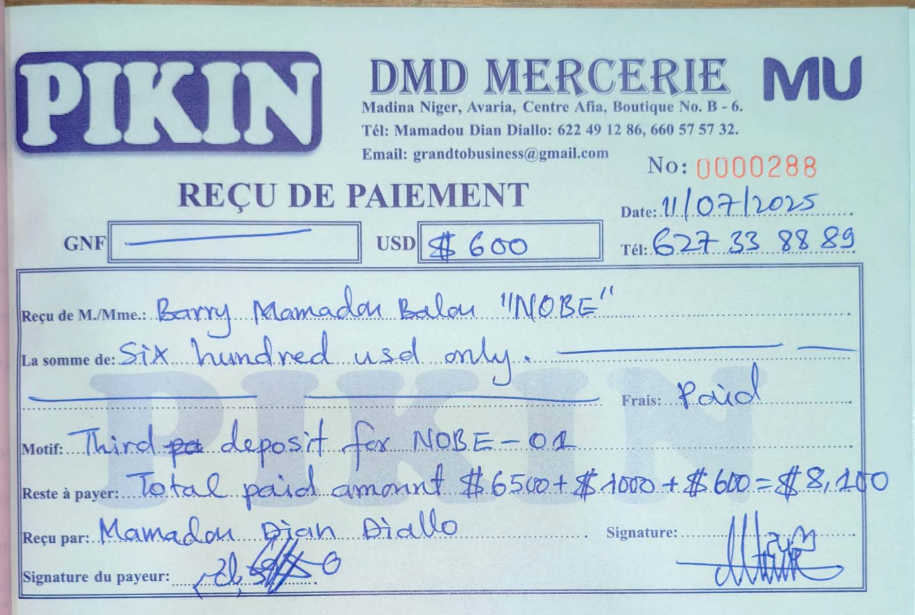 PIKIN
DMD MERCERIE
MU
Madina Niger, Avaria, Centre Afia, Boutique No. B - 6.
Tél: Mamadou Dian Diallo: 622 49 12 86, 660 57 57 32.
Email: grandtobusiness@gmail.com
No: 0000288
REÇU DE PAIEMENT
Date: 11/07/2025
GNF
USD $ 600
Tél: 627 33 88 89
Reçu de M./Mme.: Barry Mamadou Balou "NOBE"
La somme de: Six hundred usd only.
Frais: Paid
Motif: Third pa deposit for NOBE-01
Reste à payer: Total paid amount $6500+$1000+$600=$8,100
Reçu par: Mamadou Dian Diallo
Signature:
Signature du payeur:
PIKIN